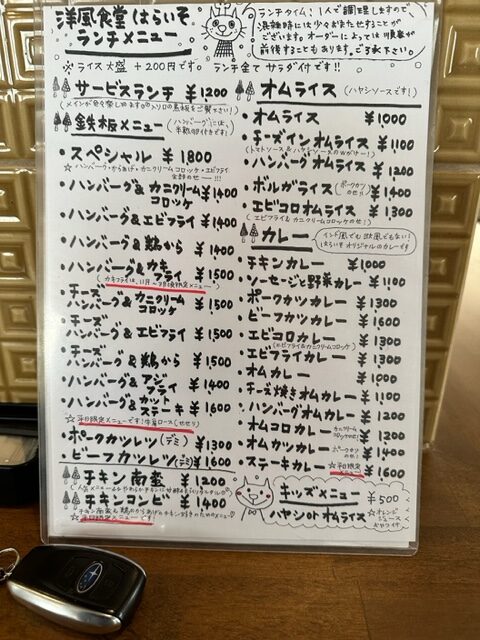 洋風食堂 はらいそ
ランチメニュー
ランチタイム、1人で調理しますので
混雑時には少々お待たせすることが
ございます。オーダーによっては順番が
前後することもあります。ご了承下さい。
※ライス大盛 +200円です。 ランチ全てサラダ付です!!
サービスランチ ¥1200
鉄板メニュー
・スペシャル ¥1800
☆ハンバーグ・からあげ・カニクリームコロッケ・エビフライ
・ハンバーグ&カニクリームコロッケ ¥1400
・ハンバーグ&エビフライ ¥1400
・ハンバーグ&鶏から ¥1400
・ハンバーグ&カキフライ ¥1500
・チーズハンバーグ&カニクリームコロッケ ¥1500
・チーズハンバーグ&エビフライ ¥1500
・チーズハンバーグ&鶏から ¥1500
・ハンバーグ&アジフライ ¥1400
・ハンバーグ&カットステーキ ¥1600
・ポークカツレツ(デミ) ¥1300
・ビーフカツレツ(デミ) ¥1600
チキン南蛮 ¥1200
チキンコンビ ¥1400
☆平日限定メニューです
オムライス (ハヤシソースです!)
・オムライス ¥1000
・チーズインオムライス ¥1100
・ハンバーグオムライス ¥1200
・ボルガライス (ポークカツのせ!!) ¥1400
・エビコロオムライス ¥1300
(エビフライ&カニクリームコロッケのせ!)
カレー
インド風でも欧風でもない!
はらいそオリジナルのカレーです
・チキンカレー ¥1000
・ソーセージと野菜カレー ¥1100
・ポークカツカレー ¥1300
・ビーフカツカレー ¥1600
・エビコロカレー ¥1300
(エビフライ&カニクリームコロッケ)
・エビフライカレー ¥1300
・オムカレー ¥1000
・チーズ焼きオムカレー ¥1100
・ハンバーグオムカレー ¥1200
・オムコロカレー ¥1200
・オムカツカレー ¥1400
・ステーキカレー ☆平日限定メニュー ¥1600
キッズメニュー ¥500
ハヤシorオムライス
☆オレンジジュース